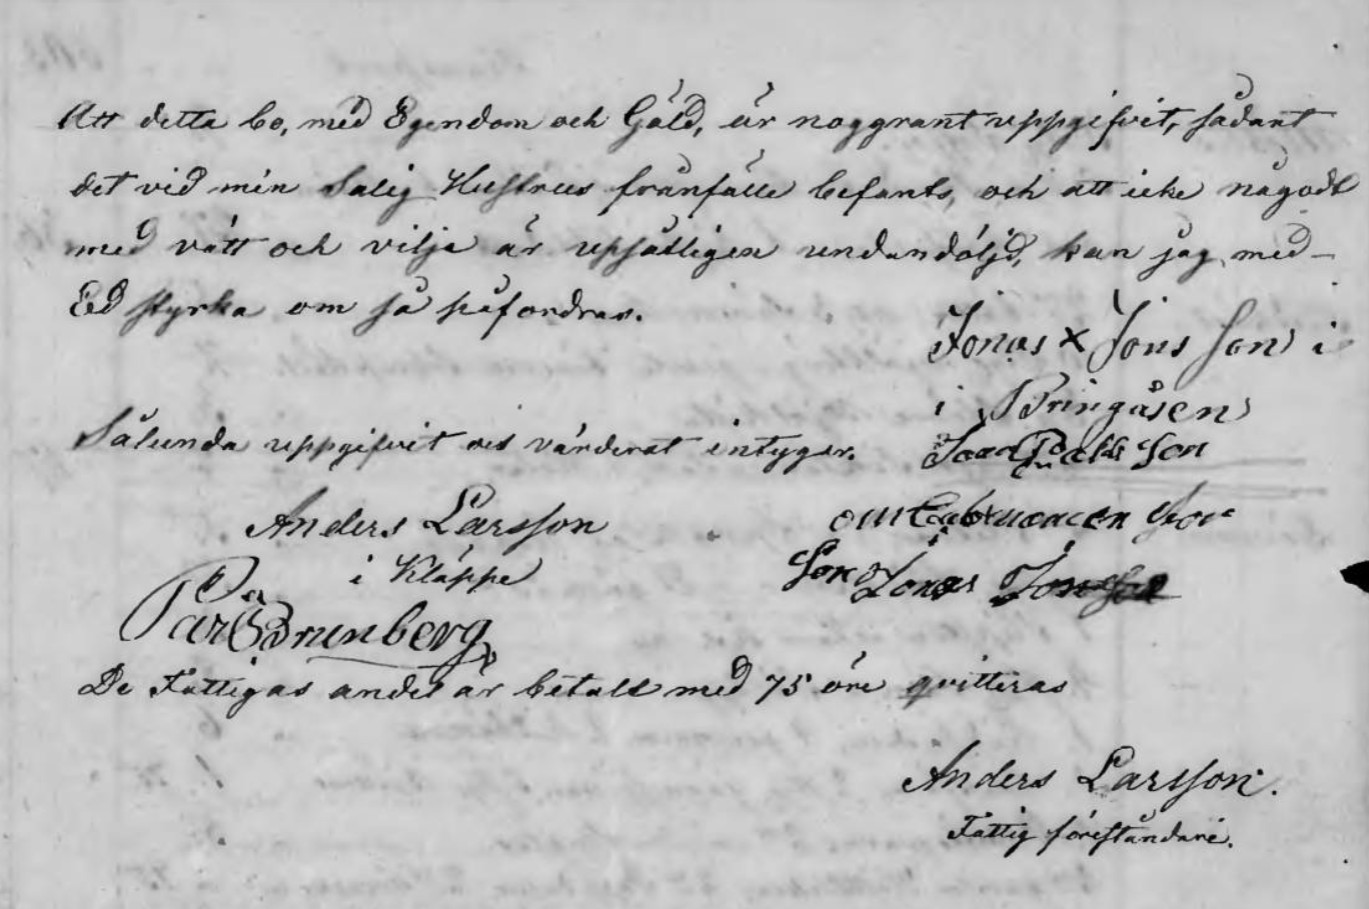 Att detta bo, med Egendom och Gäld, är noggrant uppgifvit, sådant
det vid min Salig Hustrus frånfälle befants, och att icke någodt
med vått och vilje är upsåtligen undandöljd, kan jag med
Ed styrka om så påfordras.
Jonas x Jons Son i
i Bringåsen
Sålunda uppgifvit och värderat intygar.
Anders Larsson
i Kläppe
Pär Brunberg
Son Jonas Jonsson
De Fattigas andel är betalt med 75 öre qvitteras
Anders Larsson.
Fattig föreståndare.